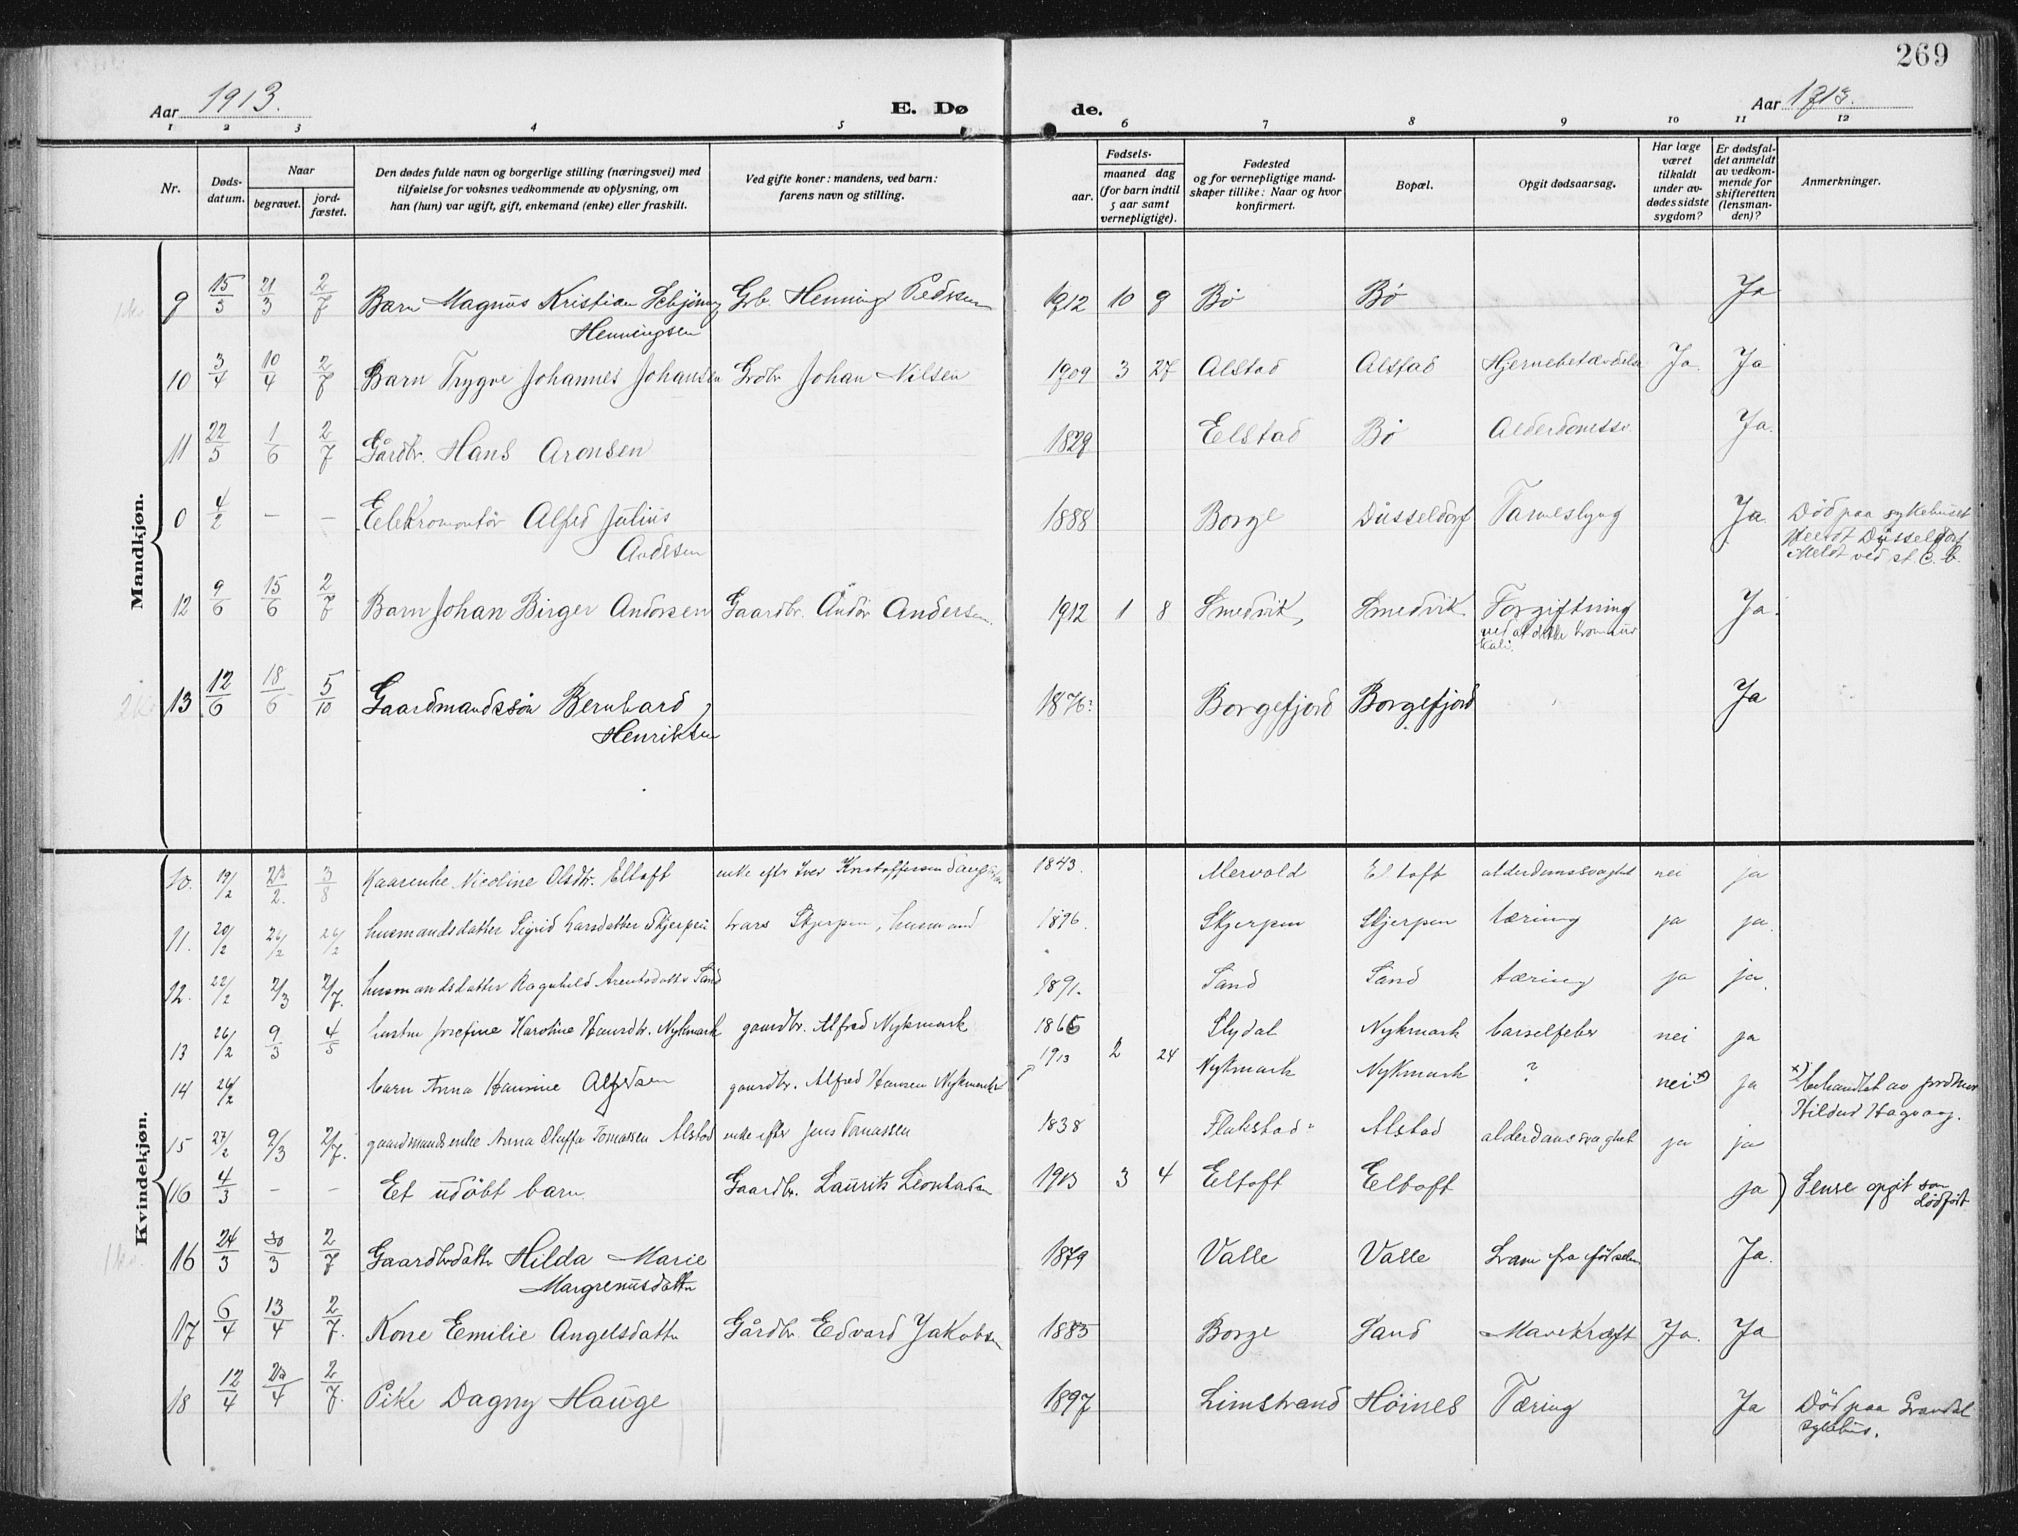 269
Aar 1913. E. Dø de. Aar 1913.
1 2 3 4 5 6 7 8 9 10 11 12
Nr. Døds-datum. Naar begravet. jord-fæstet. Den dødes fulde navn og borgerlige stilling (næringsvei) med tilføielse for voksnes vedkommende av oplysning, om han (hun) var ugift, gift, enkemand (enke) eller fraskilt. Ved gifte koner: mandens, ved barn: farens navn og stilling. Fødsels- aar. maaned dag (for barn indtil 5 aar samt vernepligtige). Fødested og for vernepligtige mandskaper tillike: Naar og hvor konfirmert. Bopæl. Opgit dødsaarsag. Har læge været tilkaldt under avdødes sidste sygdom? Er dødsfaldet anmeldt av vedkommende for skifteretten (lensmanden)? Anmerkninger.
Mandkjøn.
9 15/3 21/3 2/7 Barn Magnus Kristian Schjøning Grb. Henning Pedersen 1912 10 9 Bø Bø Ja
Henningsen
10 3/4 10/4 2/7 Barn Trygve Johannes Johansen Grdbr Johan Nilsen 1909 3 27 Alstad Alstad Hjernebetændelse Ja. Ja
11 22/5 1/6 2/7 Gårdbr. Hans Aronsen 1829 Elstad Bø Ja.
0 4/2 - - Elektromontør Alfed Julius 1888 Borge Düsseldorf Ja. Død paa sykehuset
Andesen Düsseldorf
Meldt ved st. C. B.
12 9/6 15/6 2/7 Barn Johan Birger Andorsen Gaardbr. Andor Andersen. 1912 1 8 Smedvik, Smedvik Forgiftning Ja.
ved at
kali.
13 12/6 18/6 5/10 Gaardmandssøn Bernhard 1876 Borgefjord Borgefjord Ja
Henriksen
Kvindekjøn.
10. 19/2 2/2. 3/8 Kaarenke Nicoline Olsdtr. Eltoft enke eftr Iver Kristoffersen 1843. Mervold Eltoft alderdomssvaghet nei ja
11. 20/2 26/2 26/2 husmandsdatter Sigrid Larsdatter Skjerpen Lars Skjerpen, husmand 1896. Skjerpen Skjerpen tæring ja ja.
12. 22/2 2/3 2/7. husmandsdatter Ragnhild Arentsdatter Sand 1891. Sand Sand tæring ja ja.
13 26/2 9/3 4/5 hustru Josefine Karoline Hansdtr. Nykmark gaardbr. Alfred Nykmark 1866 Slydal Nykmark barselfeber nei ja
14 26/2 barn Anna Hansine Alfredsen gaardbr. Alfred Hansen Nykmark 1913 2 24 Nykmark Nykmark ? nei x) ja x) behandlet av jordmor
Hildur Hagvaag.
15 27/2 2/3 2/7. gaardmandsenke Anna Oluffa Tomassen Alstad enke efter Jens Tomassen 1838 Flakstad Alstad alderdomssvaghet ja ja
(16 4/3 - - Et udøbt barn Gaardbr. Laurits Leonhardsen 1913 3 4 Eltoft Eltoft ja ) Senere opgit som
dødfødt
16 24/3 30/3 2/7 Gaardbrdattr Hilda Marie 1879 Valle Valle Svam fra fødselen Ja.
Margrenusdattr
17 6/4 13/4 2/7. Kone Emilie Angelsdattr Gårdbr Edvard Jakobsen 1885 Borge Sand Mavekræft Ja. Ja
18 12/4 2/4 2/7. Pike Dagny Hauge 1897 Limstrand Høines Tæring Ja Død paa
sykehus.